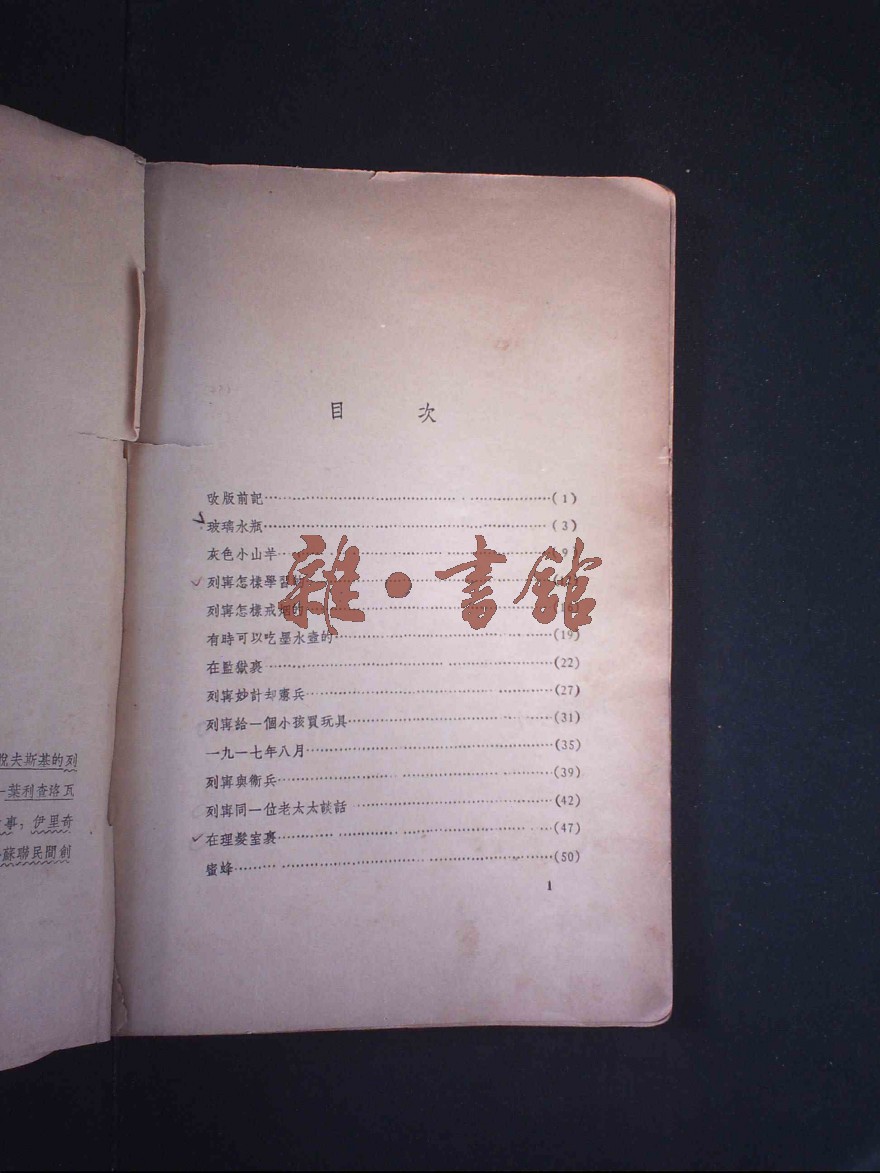 目 次
改版前記(1)
玻璃水瓶(3)
灰色小山羊9)
列寧怎樣學習的(12)
列寧怎樣戒烟的(16)
有時可以吃墨水壺的(19)
在監獄裹(22)
列寧妙計却憲兵(27)
列寧給一個小孩買玩具(31)
一九一七年八月(35)
列寧與衛兵(39)
列寧同一位老太太談話(42)
在理髮室裹(47)
蜜蜂(50)
1
雜·書館
悅夫斯基的列
葉利查洛瓦
事,伊里奇
蘇聯民間創